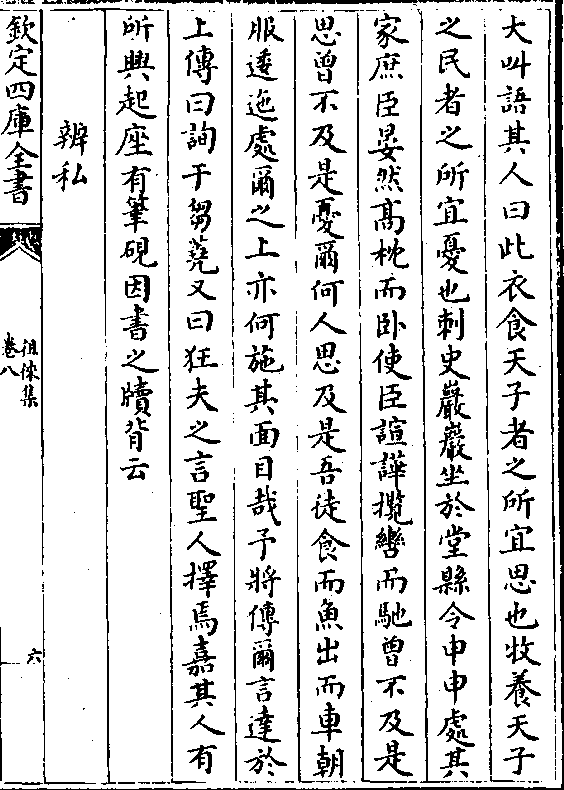 大叫語其人曰此衣食天子者之所宜思也牧養天子
之民者之所宜憂也刺史嚴嚴坐於堂縣令申申處其
家庶臣晏然高枕而卧使臣諠譁攬轡而馳曾不及是
思曾不及是憂爾何人思及是吾徒食而魚出而車朝
服逶迤處爾之上亦何施其面目哉予將傳爾言達於
上傳曰詢于芻蕘又曰狂夫之言聖人擇焉嘉其人有
所興起座有筆硯因書之牘背云
辨私
欽定四庫全書
徂徠集
卷八
六